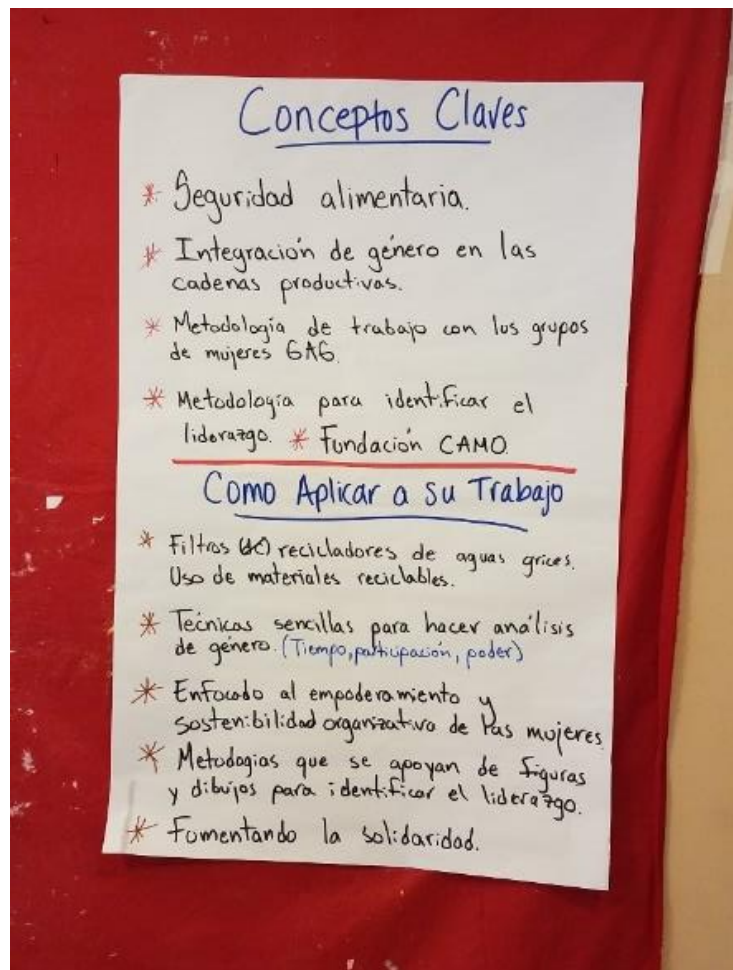 Conceptos Claves
* Seguridad alimentaria.
* Integración de género en las
cadenas productivas.
* Metodología de trabajo con los grupos
de mujeres GAG.
* Metodología para identificar el
liderazgo. * Fundación CAMO.
Como Aplicar a su Trabajo
* Filtros recicladores de aguas grices.
Uso de materiales reciclables.
* Tecnicas sencillas para hacer análisis
de género. (Tiempo, participación, poder)
* Enfocado al empoderamiento y
sostenibilidad organizativa de las mujeres
* Metodogias que se apoyan de figuras
y dibujos para identificar el liderazgo.
* Fomentando la solidaridad.